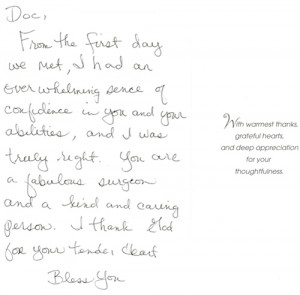 Doc,
From the first day
we met, I had an
overwhelming sence of
confidence in you and your
abilities, and I was
truly right. You are
a fabulous surgeon
and a kind and caring
person. I thank God
for your tender heart
Bless You
With warmest thanks,
grateful hearts,
and deep appreciation
for your
thoughtfulness.